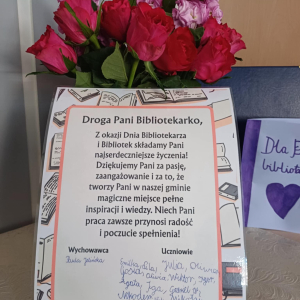 Droga Pani Bibliotekarko,
Z okazji Dnia Bibliotekarza
i Bibliotek składamy Pani
najserdeczniejsze życzenia!
Dziękujemy Pani za pasję,
zaangażowanie i za to, że
tworzy Pani w naszej gminie
magiczne miejsce pełne
inspiracji i wiedzy. Niech Pani
praca zawsze przynosi radość
i poczucie spełnienia!
Wychowawca
Uczniowie
Julia,
Wiktor,
Iga,
Dla